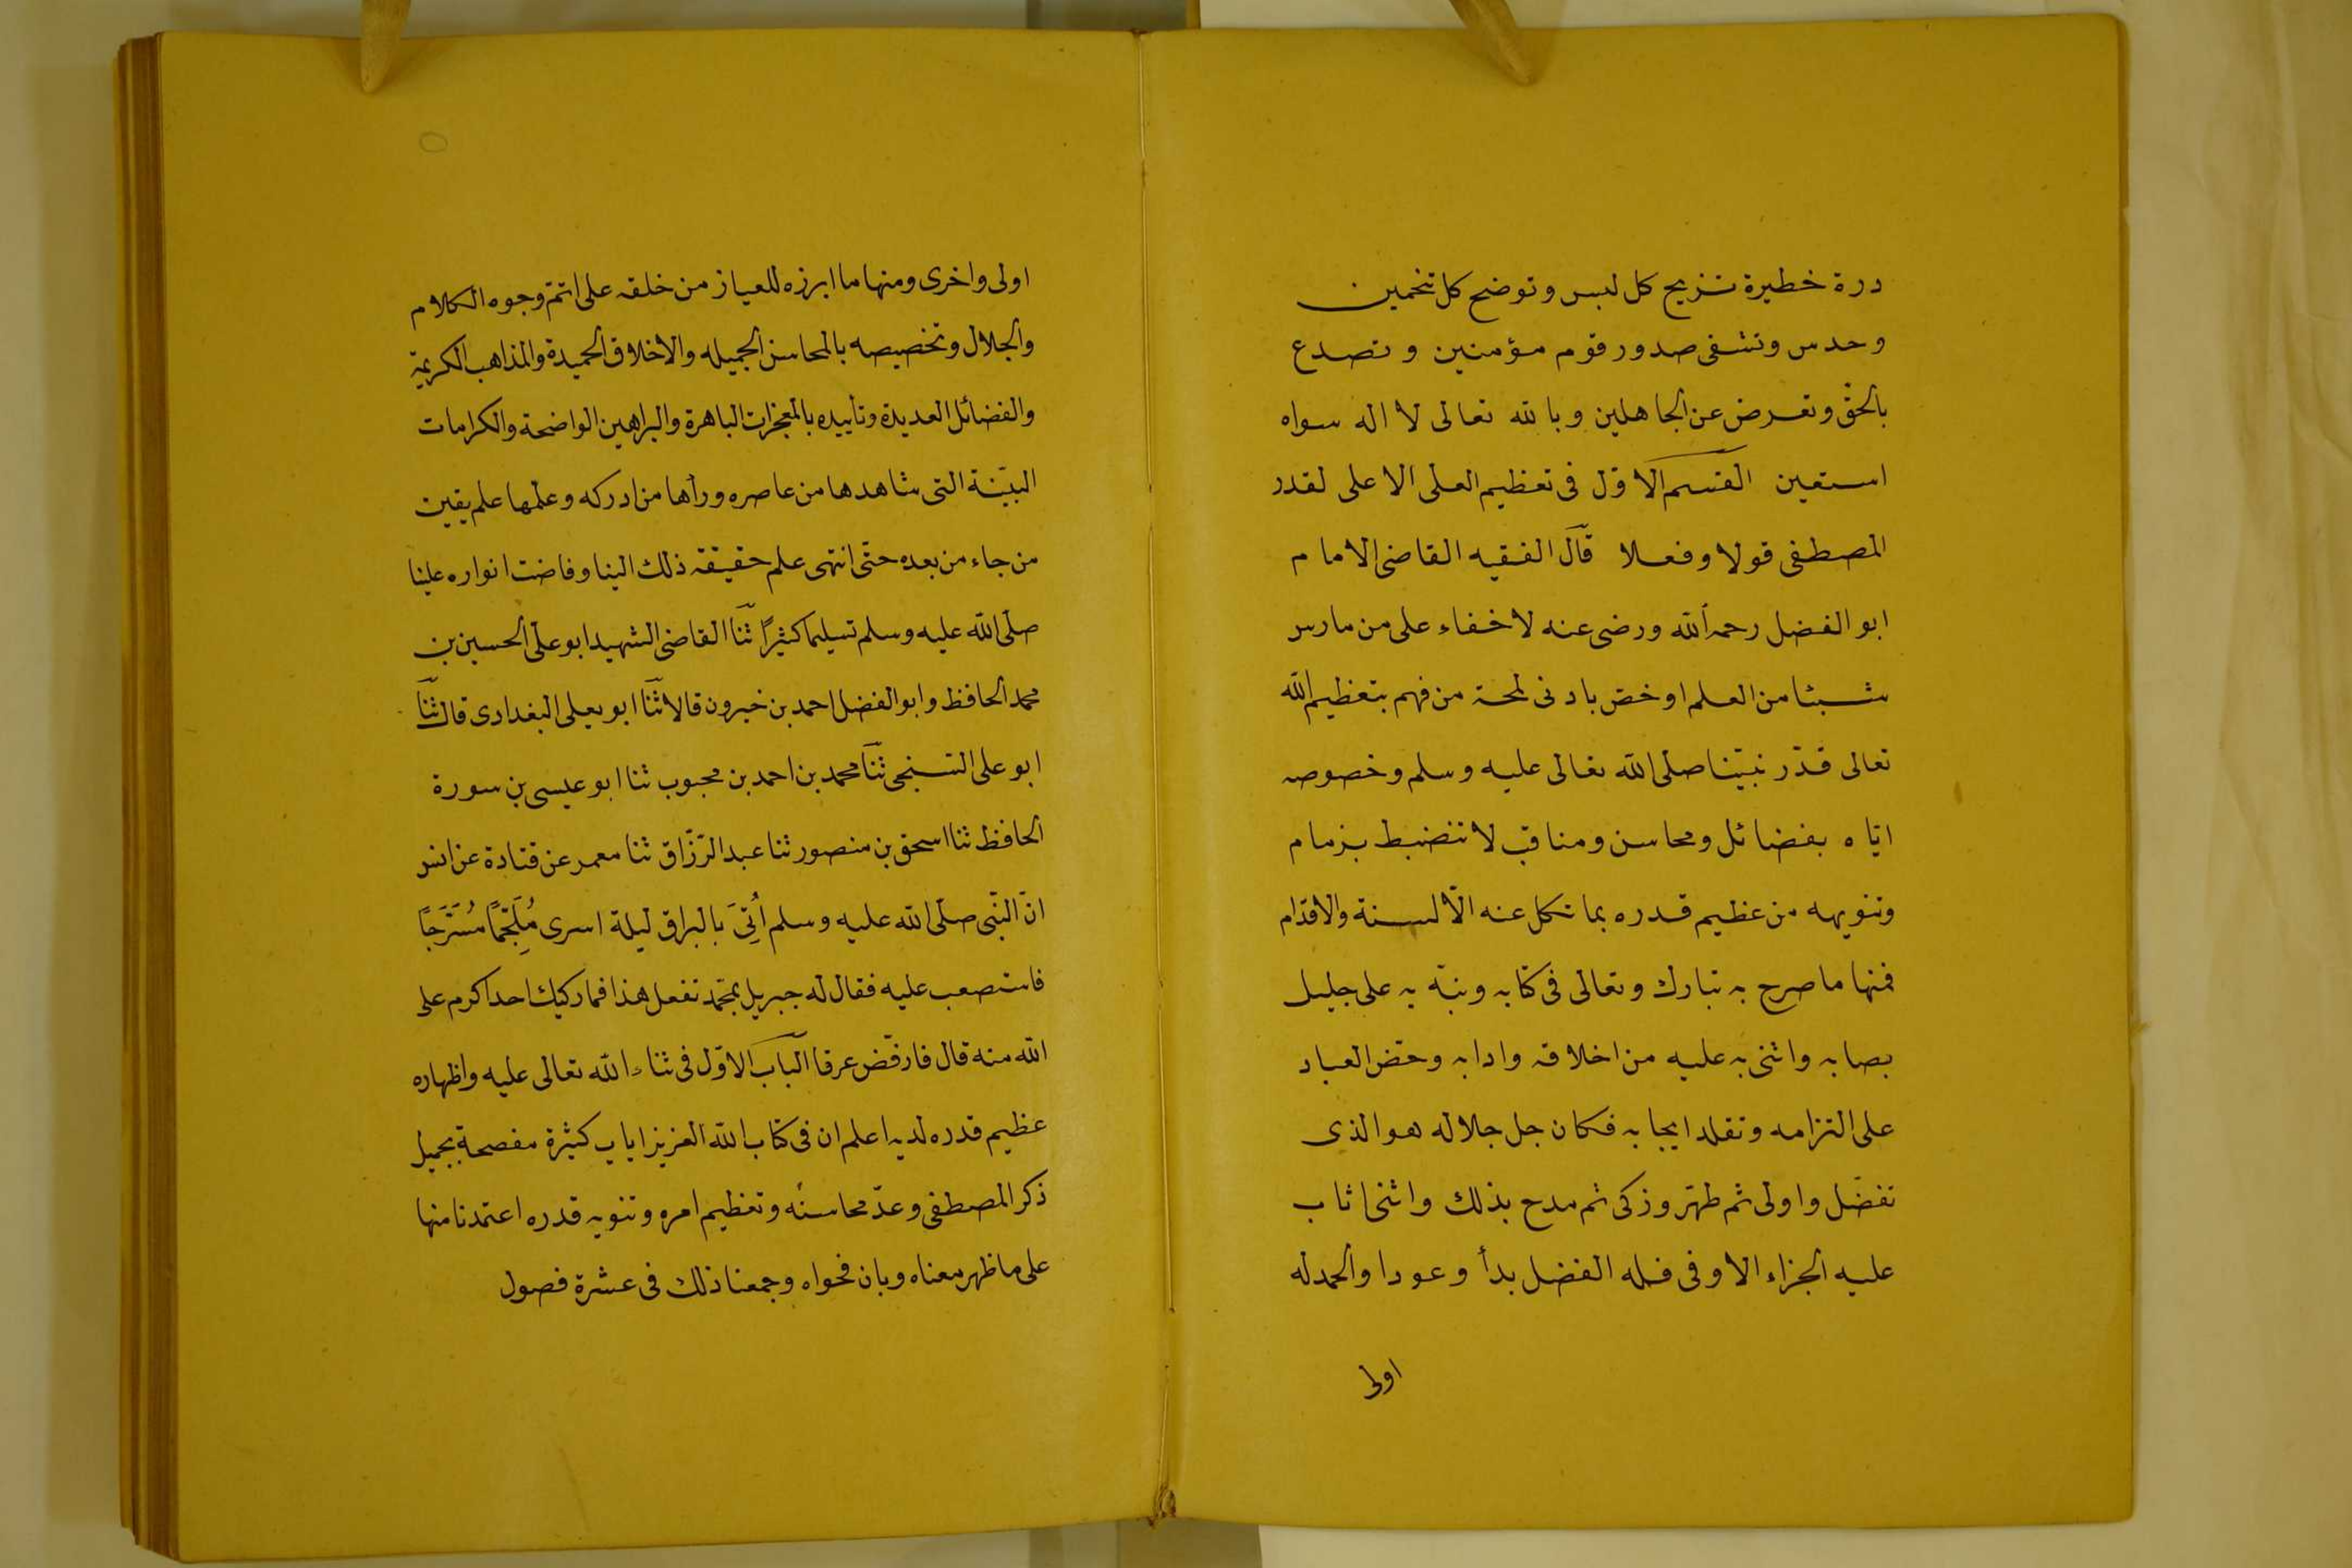 درة خطيرة تزيح كل لبس وتوضح كل تخمين
وحدس وتشفى صدور قوم مؤمنين وتصدع
بالحق وتعرض عن الجاهلين وبالله تعالى لا اله سواه
استعين القسم الاول فى تعظيم العلى الاعلى لقدر
المصطفى قولا وفعلا قال الفقيه القاضى الامام
ابو الفضل رحمه الله ورضى عنه لا خفاء على من مارس
شيئا من العلم او خص بادنى لمحة من فهم بتعظيم الله
تعالى قدر نبيّنا صلى الله تعالى عليه وسلم وخصوصه
ايّاه بفضائل ومحاسن ومناقب لا تنضبط بزمام
وتنويهه من عظيم قدره بما تكل عنه الالسنة والاقدام
فمنها ما صرح به تبارك وتعالى فى كتابه ونبّه به على جليل
بصابه واثنى به عليه من اخلاقه وادابه وحضّ العباد
على التزامه وتقلد ايجابه فكان جل جلاله هو الذى
تفضّل واولى ثم طهّر وزكى ثم مدح بذلك واثنى اثاب
عليه الجزاء الاوفى فله الفضل بدأ وعودا والحمد له
اولى
اولى واخرى ومنها ما ابرزه للعياز من خلقه على اتمّ وجوه الكلام
والجلال وتخصيصه بالمحاسن الجميله والاخلاق الحميدة والمذاهب الكريمة
والفضائل العديدة وتأييده بالمعجزات الباهرة والبراهين الواضحة والكرامات
البيّنة التى شاهدها من عاصره ورأها من ادركه وعلمها علم يقين
من جاء من بعده حتى انتهى علم حقيقة ذلك الينا وفاضت انواره علينا
صلى الله عليه وسلم تسليما كثيرًا ثنا القاضى الشهيد ابو على الحسين بن
محمد الحافظ وابو الفضل احمد بن خيرون قالا ثنا ابو يعلى البغدادى قال ثنا
ابو على السنجى ثنا محمد بن احمد بن محبوب ثنا ابو عيسى بن سورة
الحافظ ثنا اسحق بن منصور ثنا عبد الرّزّاق ثنا معمر عن قتادة عن انس
انّ النّبى صلّى الله عليه وسلم أُتِىَ بالبراق ليلة اسرى مُلَجَّمًا مُسَرَّجًا
فاستصعب عليه فقال له جبريل بمحمد تفعل هذا فما ركبك احد اكرم على
الله منه قال فارفضّ عرقا الباب الاوّل فى ثناء الله تعالى عليه واظهاره
عظيم قدره لديه اعلم ان فى كتاب الله العزيز ايات كثيرة مفصحة بجميل
ذكر المصطفى وعدّ محاسنه وتعظيم امره وتنويه قدره اعتمدنا منها
على ما ظهر معناه وبان فحواه وجمعنا ذلك فى عشرة فصول